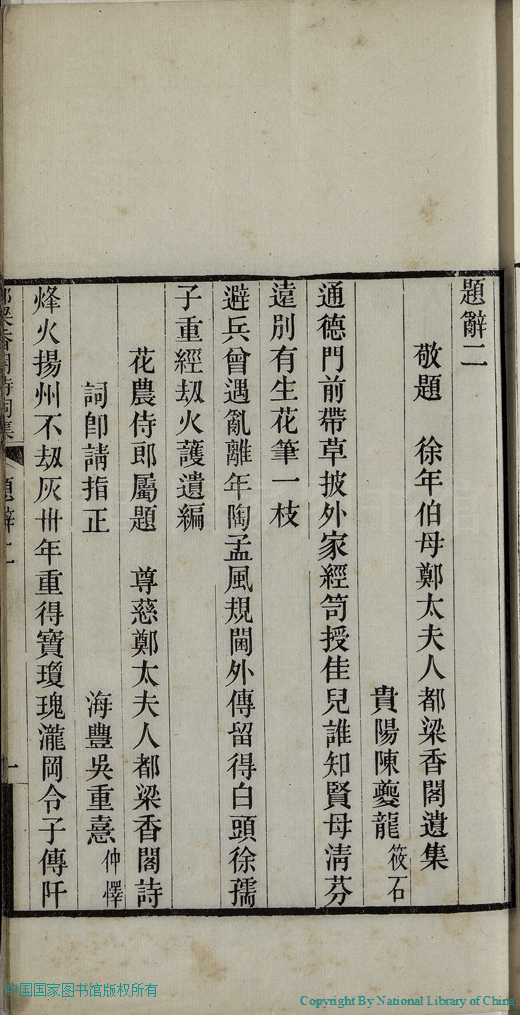 題辭二
敬題　徐年伯母鄭太夫人都梁香閣遺集
貴陽陳夔龍筱石
通德門前帶草披外家經笥授佳兒誰知賢母清芬
遠別有生花筆一枝
避兵曾遇亂離年陶孟風規閫外傳留得白頭徐孺
子重經刼火護遺編
花農侍郎屬題　尊慈鄭太夫人都梁香閣詩
詞卽請指正
海豐吳重憙仲懌
烽火揚州不刼灰卅年重得寶瓊瑰瀧岡令子傳阡
都梁香閣詩詞集
題辭二
一
中国国家图书馆版权所有
Copyright By National Library of China